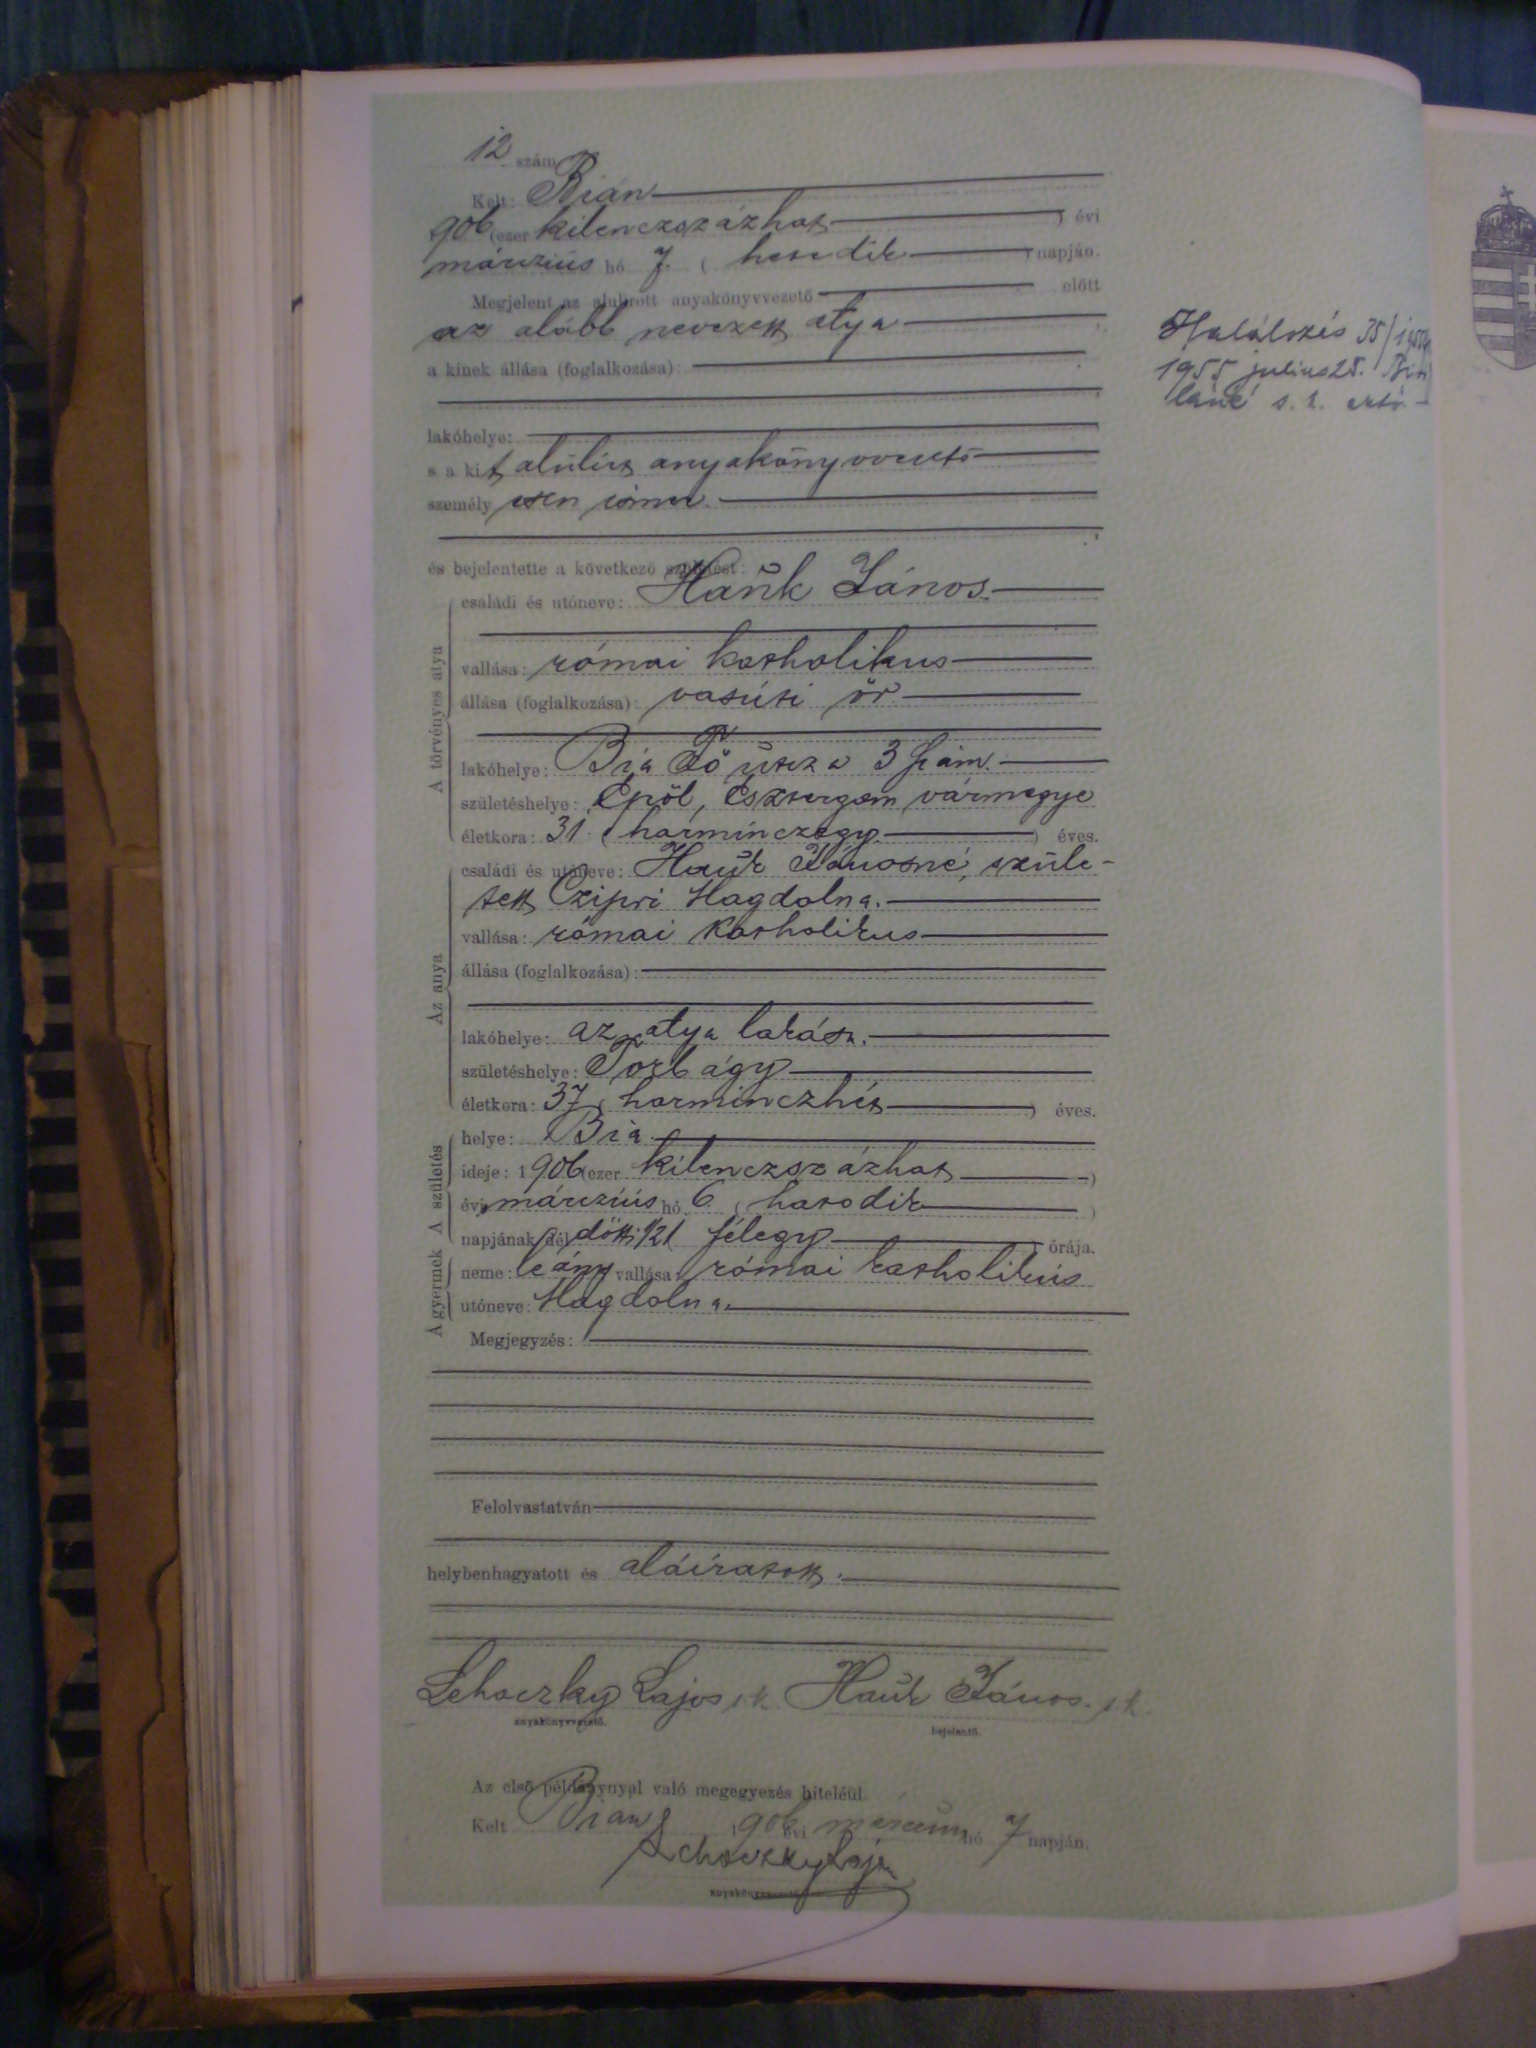 12 szám
Kelt: Bián
1906 (ezer kilenczszázhat ) évi
márczius hó 7. ( hetedik ) napján.
Megjelent az alulirott anyakönyvvezető előtt
az alább nevezett atya
a kinek állása (foglalkozása):
lakóhelye:
s a kit alulirt anyakönyvvezető
személyesen ismer.
és bejelentette a következő születést:
családi és utóneve: Hauk János.
vallása: római katholikus
állása (foglalkozása): vasúti őr
lakóhelye: Bia Fő útcza 3 szám.
születéshelye: Epöl, Esztergom vármegye
életkora: 31 ( harminczegy ) éves.
A törvényes atya
családi és utóneve: Hauk Jánosné, szüle-
tett Czipri Magdolna.
vallása: római katholikus
állása (foglalkozása):
lakóhelye: az atya lakása.
születéshelye: Torbágy
életkora: 37 ( harminczhét ) éves.
Az anya
helye: Bia
ideje: 1906 (ezer kilenczszázhat )
évi márczius hó 6 ( hatodik )
napjának dél előtt 1/21 félegy órája.
A születés
neme: leány vallása: római katholikus
utóneve: Magdolna.
A gyermek
Megjegyzés:
Felolvastatván
helybenhagyatott és aláíratott.
Lehoczky Lajos s. k. Hauk János. s. k.
anyakönyvvezető. bejelentő.
Az első példánynyal való megegyezés hiteléül
Kelt Bián 1906 évi márczius hó 7 napján.
Lehoczky Lajos
anyakönyvvezető
Halálozás 35/1955
1955 julius 25.
s. k.